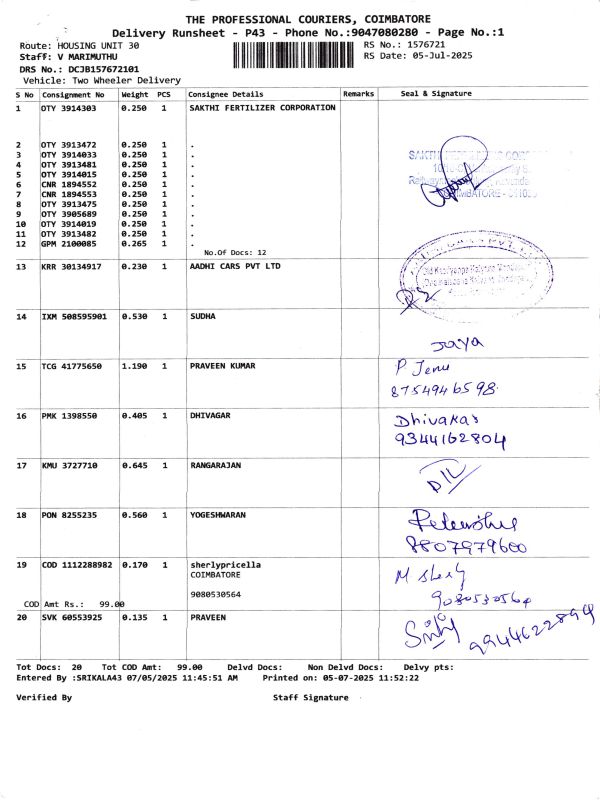 THE PROFESSIONAL COURIERS, COIMBATORE
Delivery Runsheet - P43 - Phone No.:9047080280 - Page No.:1
Route: HOUSING UNIT 30
RS No.: 1576721
Staff: V MARIMUTHU
RS Date: 05-Jul-2025
DRS No.: DCJB157672101
Vehicle: Two Wheeler Delivery
S No Consignment No Weight PCS Consignee Details Remarks Seal & Signature
1 OTY 3914303 0.250 1 SAKTHI FERTILIZER CORPORATION
2 OTY 3913472 0.250 1 .
3 OTY 3914033 0.250 1 .
4 OTY 3913481 0.250 1 .
5 OTY 3914015 0.250 1 .
6 CNR 1894552 0.250 1 .
7 CNR 1894553 0.250 1 .
8 OTY 3913475 0.250 1 .
9 OTY 3905689 0.250 1 .
10 OTY 3914019 0.250 1 .
11 OTY 3913482 0.250 1 .
12 GPM 2100085 0.265 1 .
No.Of Docs: 12
13 KRR 30134917 0.230 1 AADHI CARS PVT LTD
14 IXM 508595901 0.530 1 SUDHA
Jaya
15 TCG 41775650 1.190 1 PRAVEEN KUMAR
P Jenu
8754946598
16 PMK 1398550 0.405 1 DHIVAGAR
Dhivakar
9344162804
17 KMU 3727710 0.645 1 RANGARAJAN
18 PON 8255235 0.560 1 YOGESHWARAN
8807979600
19 COD 1112288982 0.170 1 sherlypricella
COIMBATORE
9080530564
M Sherly
9080530564
COD Amt Rs.: 99.00
20 SVK 60553925 0.135 1 PRAVEEN
9944622894
Tot Docs: 20 Tot COD Amt: 99.00 Delvd Docs: Non Delvd Docs: Delvy pts:
Entered By :SRIKALA43 07/05/2025 11:45:51 AM Printed on: 05-07-2025 11:52:22
Verified By Staff Signature